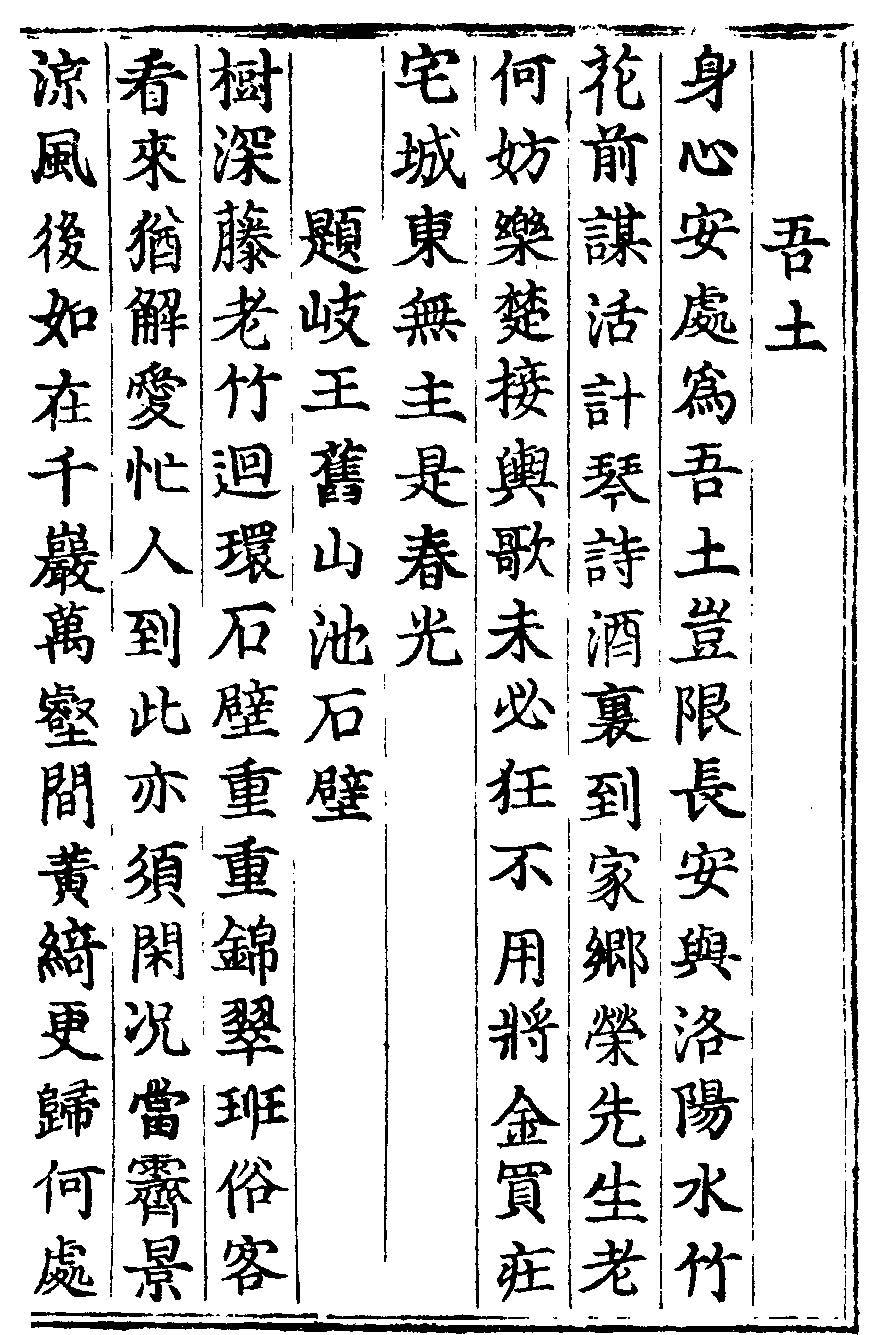 吾土
身心安處爲吾土豈限長安與洛陽水竹
花前謀活計琴詩酒裏到家郷榮先生老
何妨樂楚接輿歌未必狂不用將金買庄
宅城東無主是春光
題岐王舊山池石壁
樹深藤老竹迴環石壁重重錦翠班俗客
看來猶解愛忙人到此亦須閑况當霽景
涼風後如在千巖萬壑間黃綺更歸何處